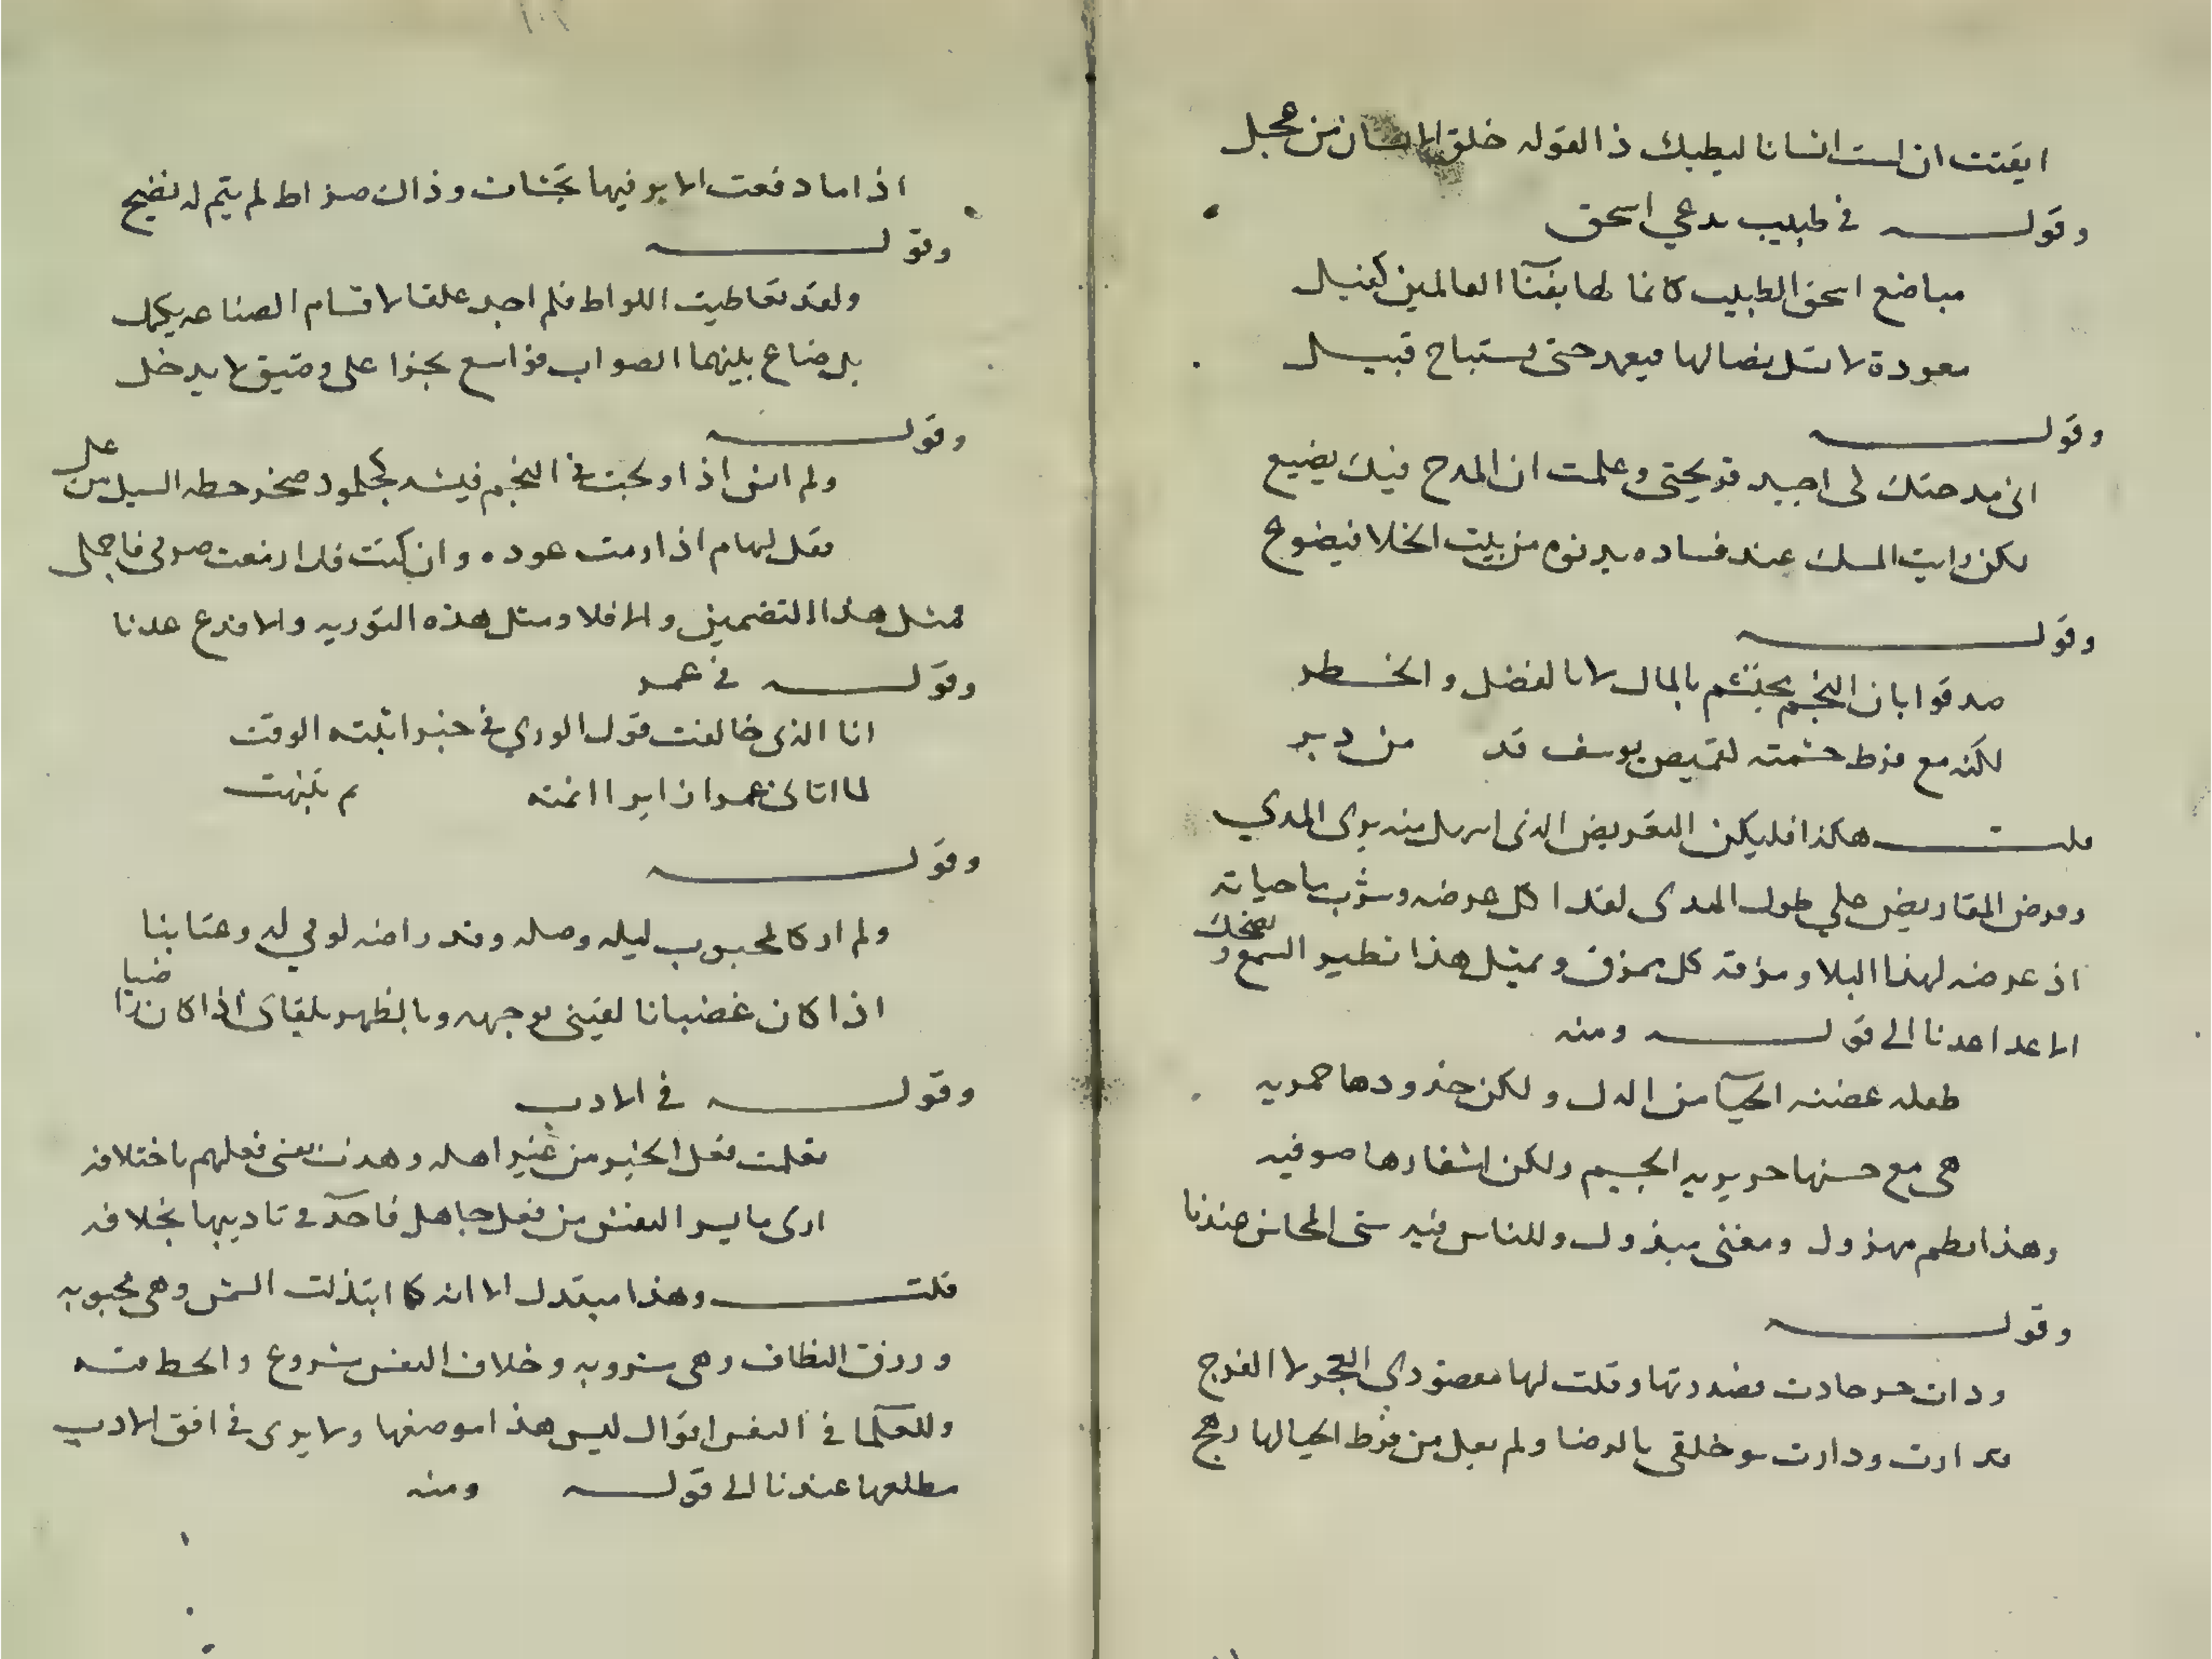 ايقنت ان لست انسانا ليطبك ذا لقوله خلق الانسان من عجل
وقولـــــه في طبيب يدعي اسحق
مباضع اسحق الطبيب كانما لها بفنآ العالمين كفيل
معودة لا تسل نصالها فيعمد حتى يستباح قبيل
وقولـــــه
انى مدحتك لى اجيد قريحتى وعلمت ان المدح فيك يضيع
لكن رايت المسك عند فساده يدنوه من بيت الخلا فيضوع
وقولـــــه
صدقوا بان النجم محتشم بالمال لا بالفضل والخطر
لكنه مع فرط حشمته لقميص يوسف قد من دبر
قلت هكذا فليكن التعريض الذى
وقرض المقاريض علي طول المدى لقد اكل عرضه وشرب ما حياته
اذ عرضه لهذا البلا ومزقه كل ممزق وبمثل هذا تطير السمع و يضحك
الاعدا عدنا الى قولـــــه ومنه
طفله غضنه الحيآ من الدل ولكن خدودها خمريه
هى مع حسنها حريريه الجسم ولكن اشفارها صوفيه
وهذا نظم مهزول ومعنى مبذول وللناس فيه ستى المحاسن عندنا
وقولـــــه
وذات حر جادت فصددتها وقلت لها مقصودي العجز لا الفرج
فدارت ودارت سو خلقى بالرضا ولم من فرط الحيا لها رهج
اذا ما دفعت الاير فيها تجشات وذاك ضراط لم يتم له نضيج
وقولـــــه
ولقد تعاطيت اللواط فلم اجد علقا لاقسام الصناعه يكمل
بل ضاع بينهما الصواب فواسع يجزا على وضيق لا يدخل
وقولـــــه
ولم انس اذ اولجت في النجم فيشه كجلمود صخر حطه السيل من عل
فقل لهام اذا رمت عوده وان كنت قد ازمعت صرمى فاجملى
بمثل هذا التضمين والا فلا ومثل هذه التوريه والا فدع عدنا
وقولـــــه في عمر
انا الذى خالفت قول الورى في خبر اثبته الوقت
لما اتانى عمر زايرا انمته ثم تنبهت
وقولـــــه
ولم ار كالمحبوب ليله وصله وقد راضه لومي له وعتابنا
اذا كان غضبانا لقينى بوجهه وبالظهر يلقانى اذا كان راضيا
وقولـــــه في الادب
تعلمت فعل الخير من غير اهله وهذب نفسى فعلهم باختلافه
ارى ما يسو النفس من فعل جاهل فاخذ في تاديبها بخلافه
قلت وهذا مبتذل الا انه كما ابتذلت الشمس وهى محبوبه
ورزق النطاف وهى مشروبه وخلاف النفس مشروع والحط منه
وللحكما في النفس اقوال ليس هذا موضعها ولا يرى في افق الادب
مطلعها عندنا الى قولـــــه ومنه